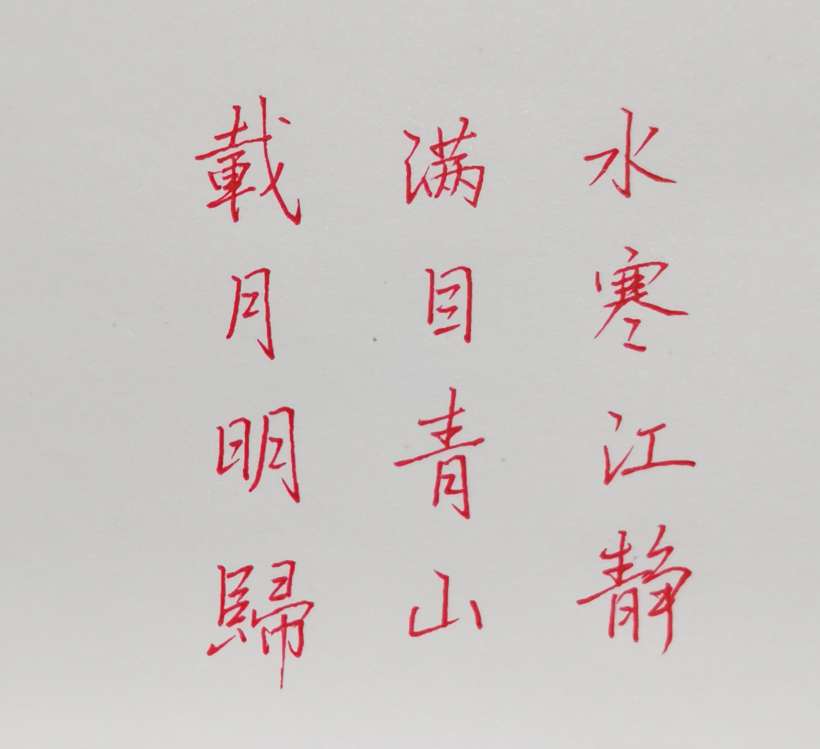 水寒江静
满目青山
載月明歸